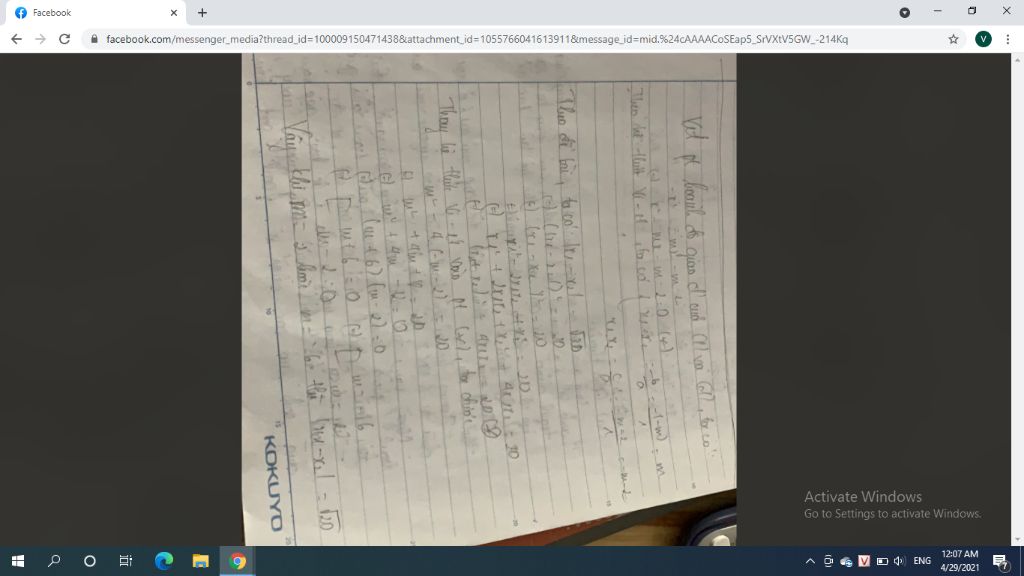 Facebook
facebook.com/messenger_media?thread_id=100009150471438&attachment_id=1055766041613911&message_id=mid.%24cAAAACoSEap5_SrVXtV5GW_-214Kq
V
Viết pt hoành độ giao của (P) và (d), ta có:
x² = mx - m - 2 = 0 (*)
Theo hệ thức Vi-ét, ta có { x₁ + x₂ = -b/a = -(-m)/1 = m
x₁x₂ = c/a = -m-2/1 = -m-2
Theo đề bài, ta có: |x₁ - x₂| = √20
(=) (|x₁ - x₂|)² = 20
(=) (x₁ - x₂)² = 20
(=) x₁² - 2x₁x₂ + x₂² = 20
(=) x₁² + 2x₁x₂ + x₂² - 4x₁x₂ = 20
(=) (x₁ + x₂)² - 4x₁x₂ = 20
Thay hệ thức Vi-ét vào pt (*), ta được
m² - 4(-m-2) = 20
(=) m² + 4m + 8 = 20
(=) m² + 4m - 12 = 0
(=) (m + 6)(m - 2) = 0
(=) [ m + 6 = 0 (=) [ m = -6
m - 2 = 0 m = 2
Vậy khi m = 2 hoặc m = -6 thì |x₁ - x₂| = √20
KOKUYO
Activate Windows
Go to Settings to activate Windows.
V
ENG
12:07 AM
4/29/2021
7